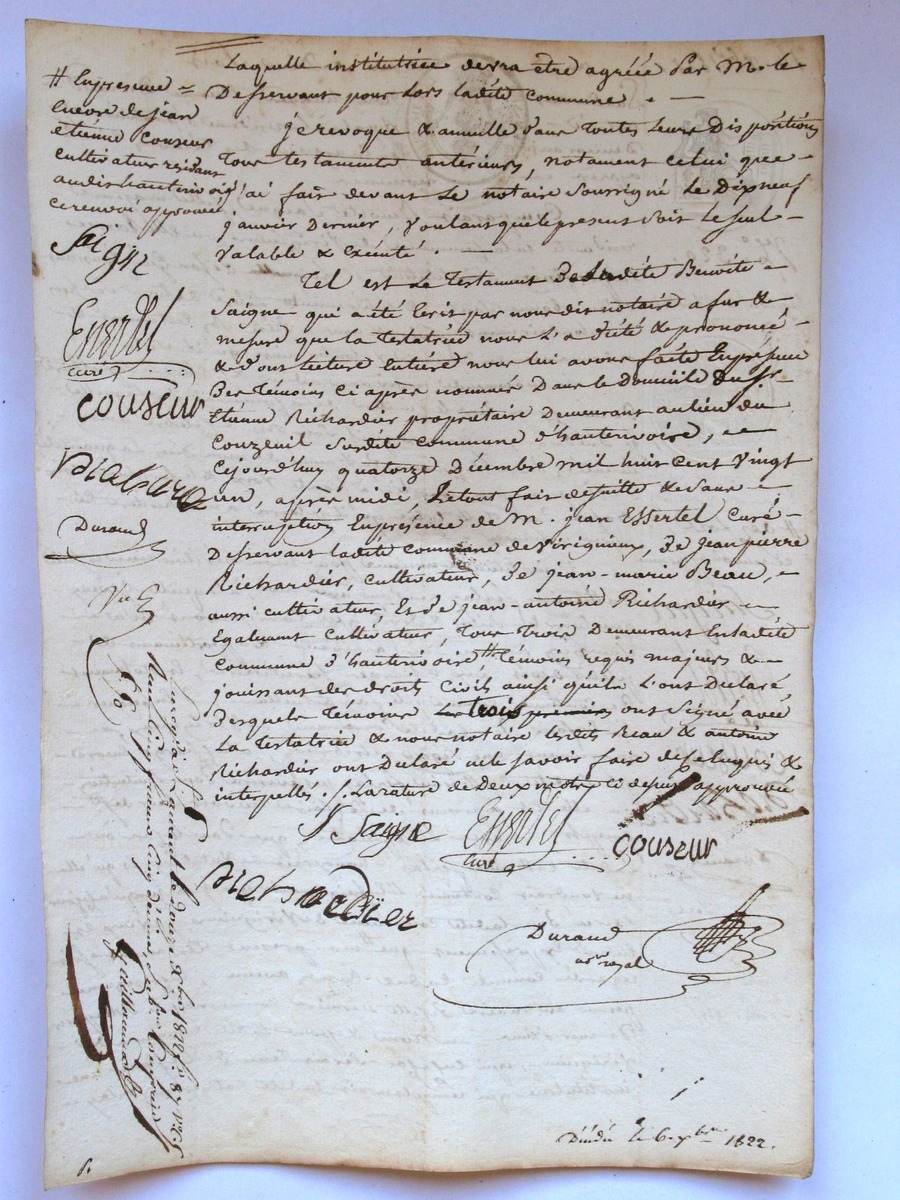 Laquelle institutrice devra etre agréée par M. le
Desservant pour lors ladite commune. =
je revoque & annulle dans toutes leurs Dispositions
Tous testaments antérieurs, notament celui que =
j'ai fait devant Le notaire soussigné Le Dixneuf
janvier Dernier, voulant que le present soit le seul =
valable & exécuté. =
Tel est Le Testament De Ladite Benoite =
Saigne qui a été Ecrit par nous dit notaire a fur &
mesure que la testatrice nous L'a dicté & prononcé =
& dont lecture entiere nous lui avons faite En présence
Des Témoins Ci après nommés Dans le Domicile du Sr
Etienne Richardier propriétaire Demeurant au lieu du
Couzeuil susdite commune d'hauterivoire, =
Cejourd'huy quatorze Décembre mil huit cent vingt
un, après midi, Le tout fait de suite & sans =
interruption En présence de M. jean Essertel Curé =
Desservant ladite commune de Virigneux, De jean pierre
Richardier, cultivateur, De jean-marie Beau, =
aussi cultivateur, Et De jean-antoine Richardier =
Egalement cultivateur, Tous Trois Demeurant En ladite
Commune d'hauterivoire, # Témoins requis majeurs & =
jouissant des droits Civils ainsi qu'ils L'ont Déclaré
Desquels Témoins Les Trois premiers ont Signé avec
La Testatrice & nous notaire lesdits Beau & antoine
Richardier ont Déclaré ne le savoir faire de ce Enquis &
interpellés. /. La rature de Deux mots ci dessus approuvée
# En présence =
Encore de jean
etienne Couseur
Cultivateur résidant
audit hauterivoire
ce renvoi approuvé
Saigne
Essertel
curé
couseur
Richardier
Durand
B Saigne
Essertel
curé
couseur
richardier
Durand
nre royal
Enregistré à St Laurent le Douze Xbre 1822 fo 87 Vo C 5
Reçu Cinq francs Cinq décimes
Guillermard
Dudit le 6. Xbre 1822